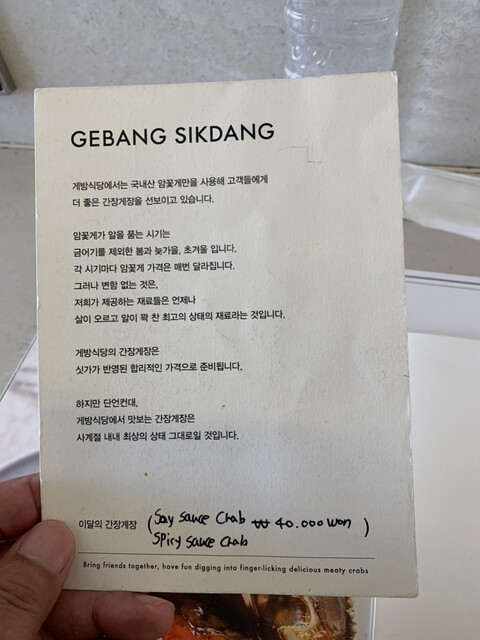 GEBANG SIKDANG
게방식당에서는 국내산 암꽃게만을 사용해 고객들에게
더 좋은 간장게장을 선보이고 있습니다.
암꽃게가 알을 품는 시기는
금어기를 제외한 봄과 늦가을, 초겨울 입니다.
각 시기마다 암꽃게 가격은 매번 달라집니다.
그러나 변함 없는 것은,
저희가 제공하는 재료들은 언제나
살이 오르고 알이 꽉 찬 최고의 상태의 재료라는 것입니다.
게방식당의 간장게장은
싯가가 반영된 합리적인 가격으로 준비됩니다.
하지만 단언컨대,
게방식당에서 맛보는 간장게장은
사계절 내내 최상의 상태 그대로일 것입니다.
이달의 간장게장 (Soy sauce Crab ₩ 40.000 won )
Spicy sauce Crab
Bring friends together, have fun digging into finger-licking delicious meaty crabs